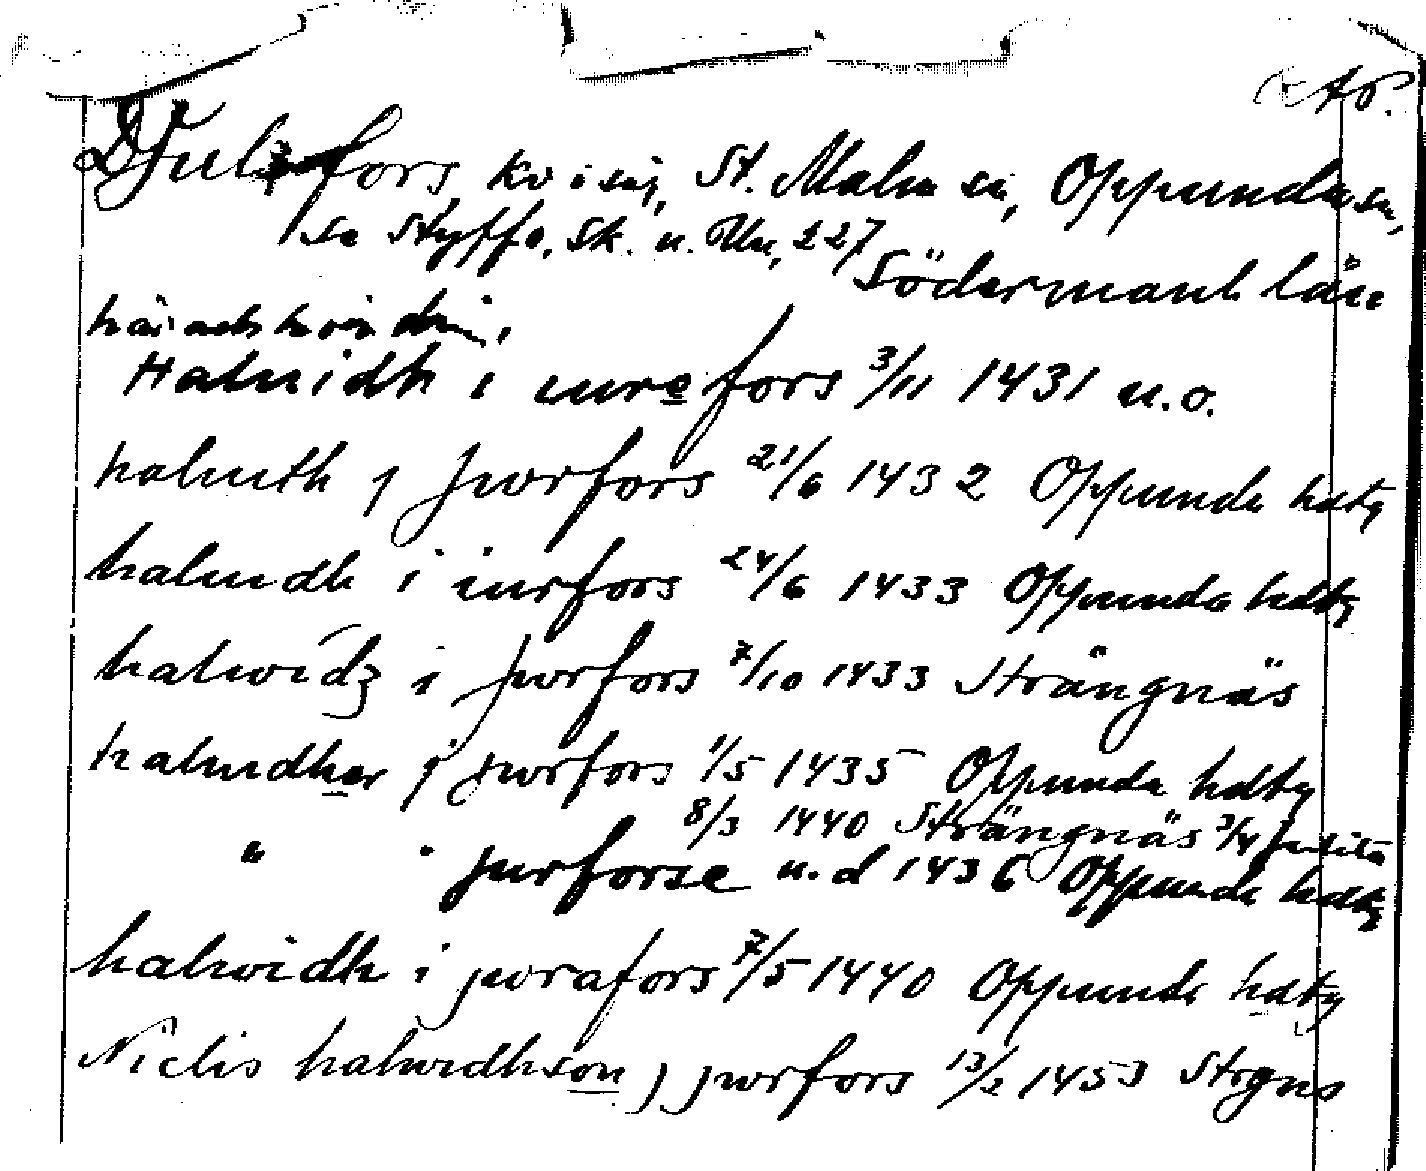 Djulefors, kv i sig, St. Malm sn, Oppunda
se Styffe, Sk. u. Un, 227
Södermanl län
häradshövding
Haluidh i iurefors 3/11 1431 u.o.
haluith j jwrfors 21/6 1432 Oppunda hdtg
haluidh i iurfors 24/6 1433 Oppunda hdtg
halwidz i jwrfors 7/10 1433 Strängnäs
haluidher j jwrfors 1/5 1435 Oppunda hdtg
8/3 1440 Strängnäs 3/4 Julita
" " jurforse u.d 1436 Oppunda hdtg
halwidh i jwrafors 7/5 1440 Oppunda hdtg
Niclis halwidhson j jwrfors 13/2 1453 Strgns